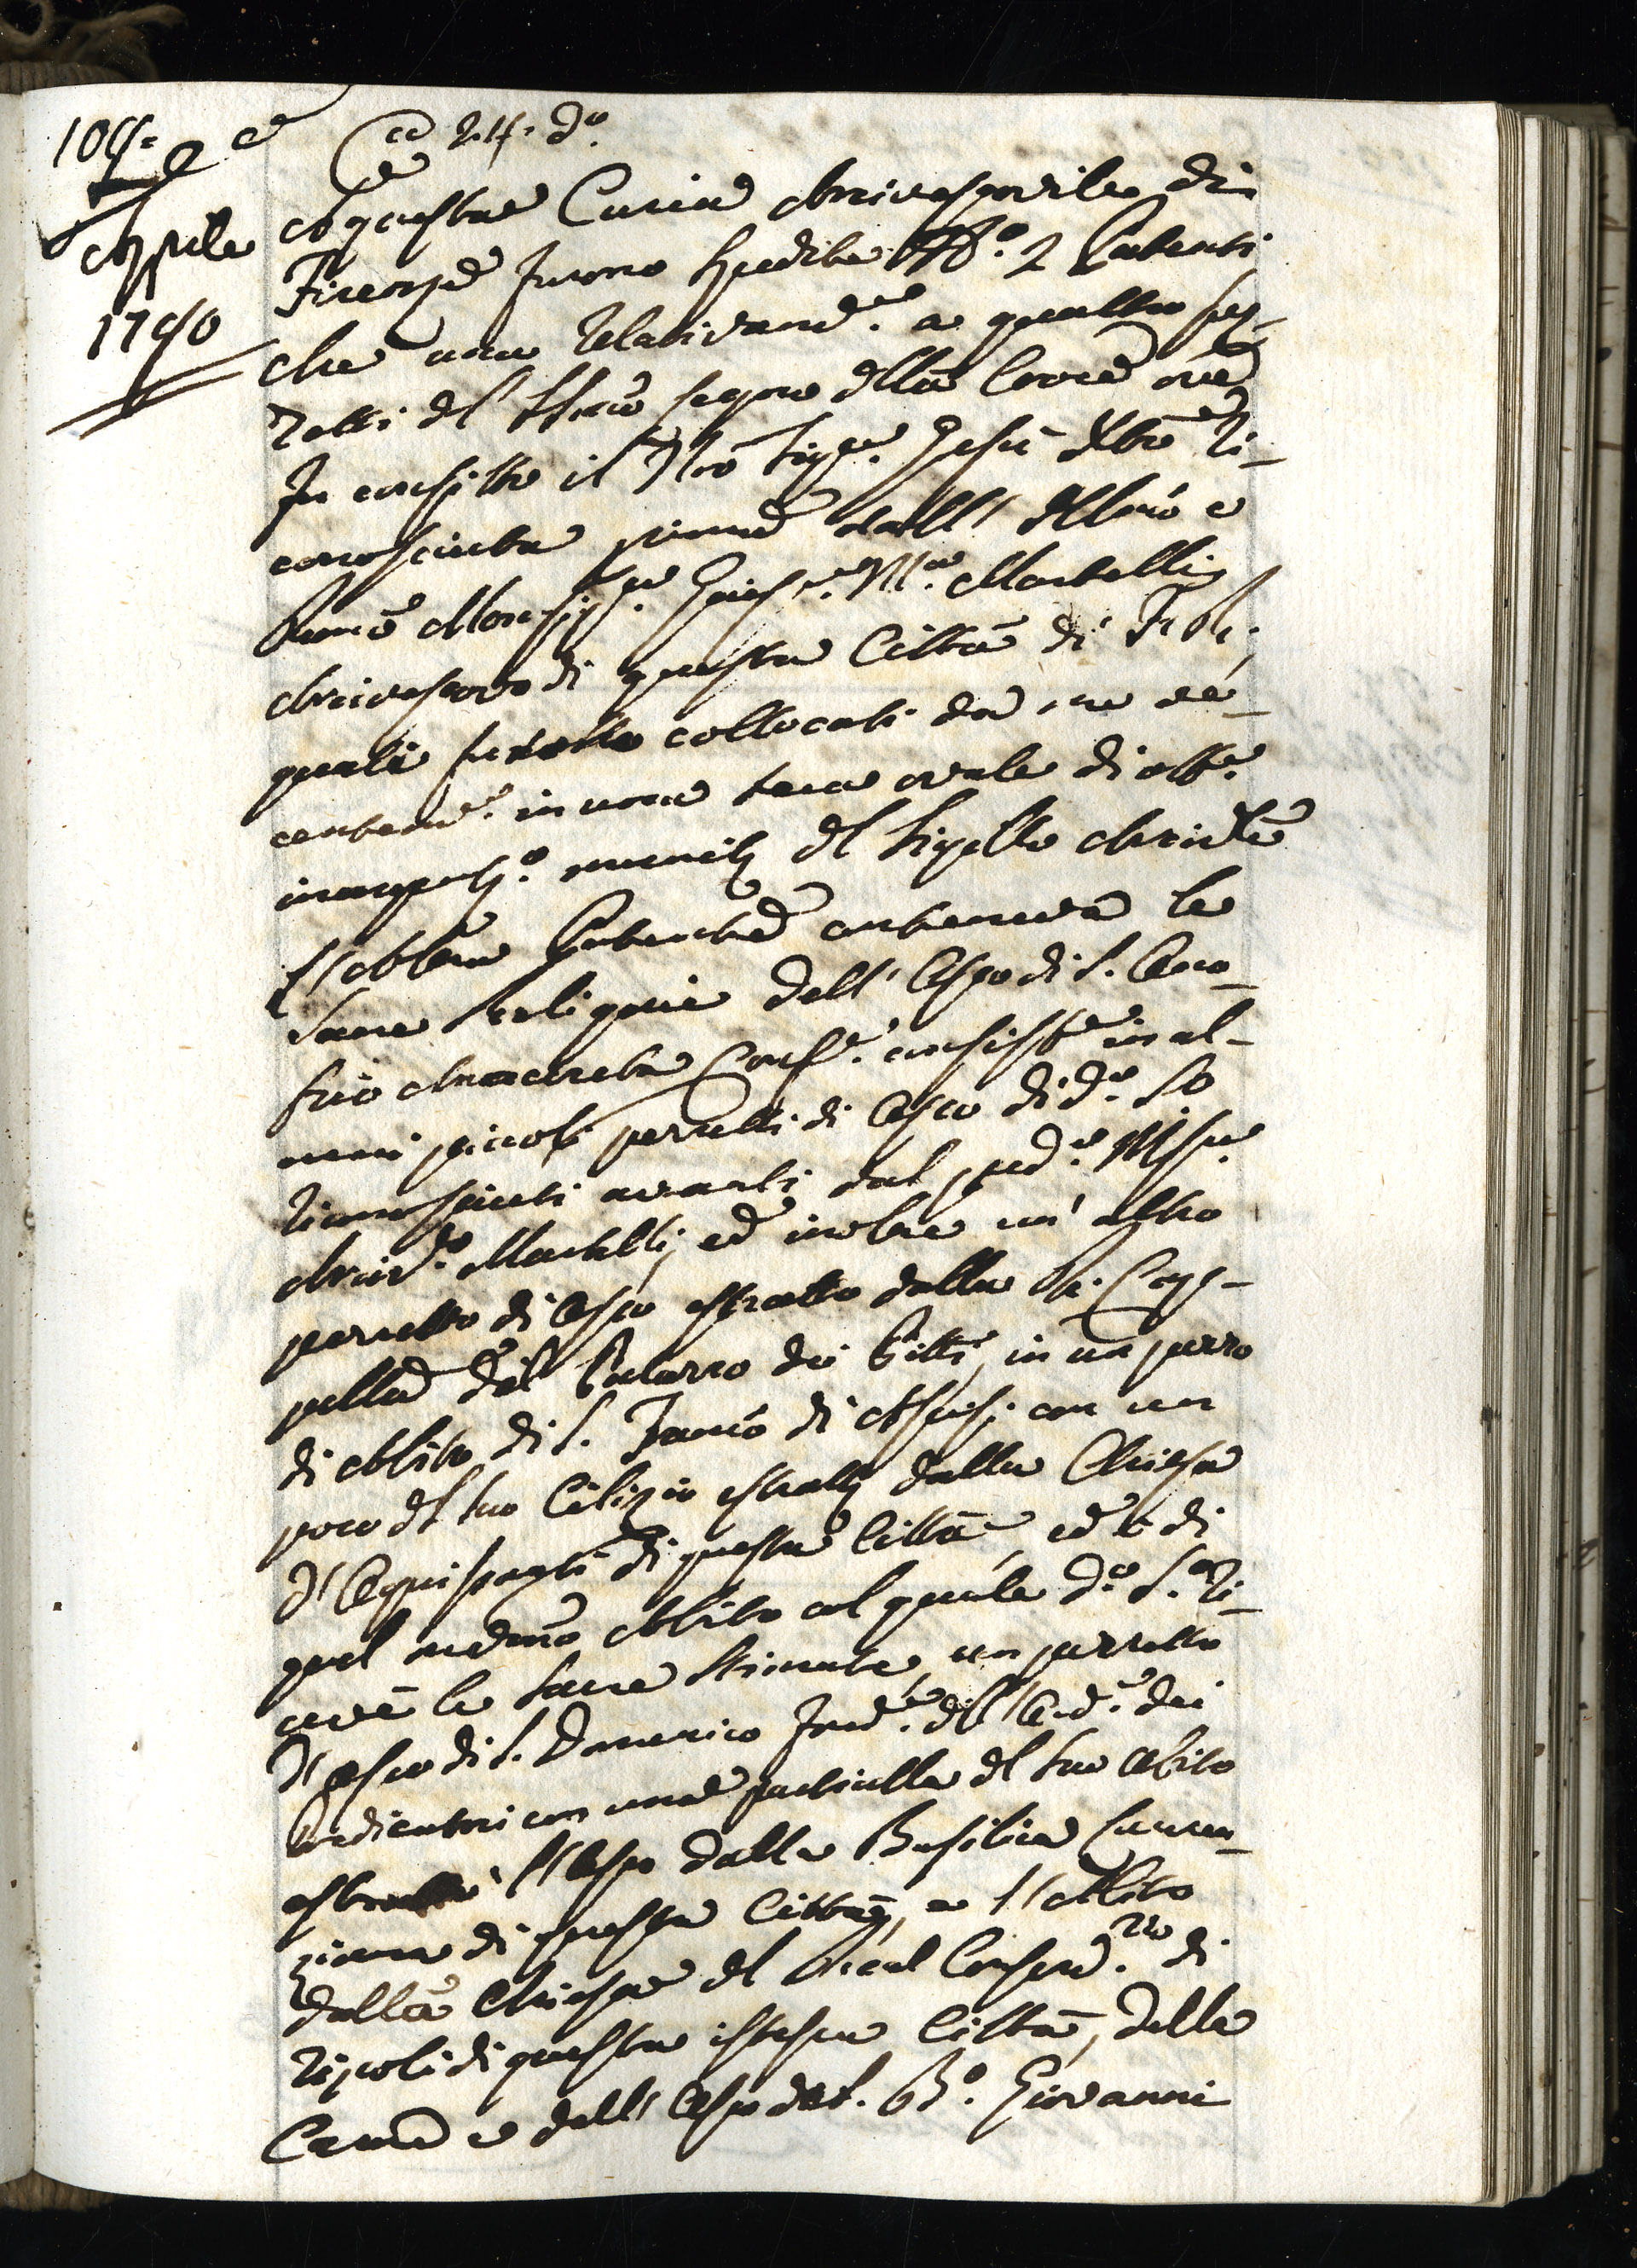 109.
2 e
Aprile
1790
24. do.
Da questa Curia Arcivescovile di
Firenze furono spedite No. 2 Patenti
che una relativame. a quattro pez-
zetti del SSmo Legno della Croce ove
fu confitto il Nro Sige. Gesù Xto ri-
conosciuta prima dall' Illmo e
Rmo Monsigre. Giuse. Ma. Martelli
Arcivescovo di questa Città di
quali furono collocati da me de-
centeme. in una teca ovale di
inargento. muniti del Sigillo Arcivle
L'altra Patente conteneva le
Sacre Reliquie dell' Osso di S. Ono-
frio Anacoreta Conf. consiste in al-
cuni piccoli pezzetti di Osso di do. So
riconosciuti avanti dal pred. Msre.
Arcivo. Martelli, ed inoltre un' altro
pezzetto di Osso estratto dalla R. Cap-
pella del Palazzo dei Pitti, in un pezzo
di Abito di S. Franco di Assisi con un
poco del suo Cilizio estratti dalla Chiesa
d'Ognissanti di questa Città, ed è di
quel medmo Abito col quale do. S. ri-
cevè le Sacre Stimate, un pezzetto
d'osso di S. Domenico Fond. dell' Ord. dei
Predicatori con una particella del suo Abito
estratti l'Osso dalla Basilica Lauren-
ziana di questa Città, e l'Abito
dalla Chiesa del Real Conserv.rio di
Ripoli di questa istessa Città, della
Carne e dell' Osso del B. Giovanni